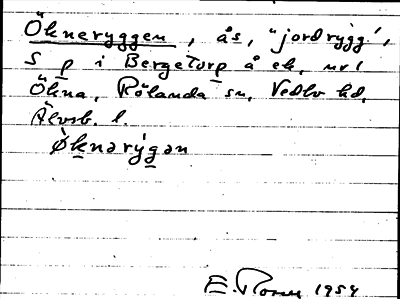 Ökneryggen, ås, "jordrygg",
S p i Bergstorp å ek. nr 1
Ökna, Rölanda sn, Vedbo hd,
Älvsb. l.
Øknərýgən
E. 1954